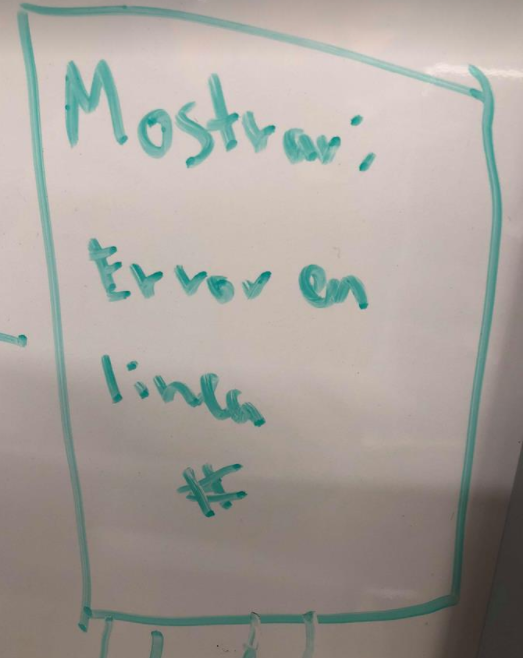 Mostrar:
Error en
linea
#